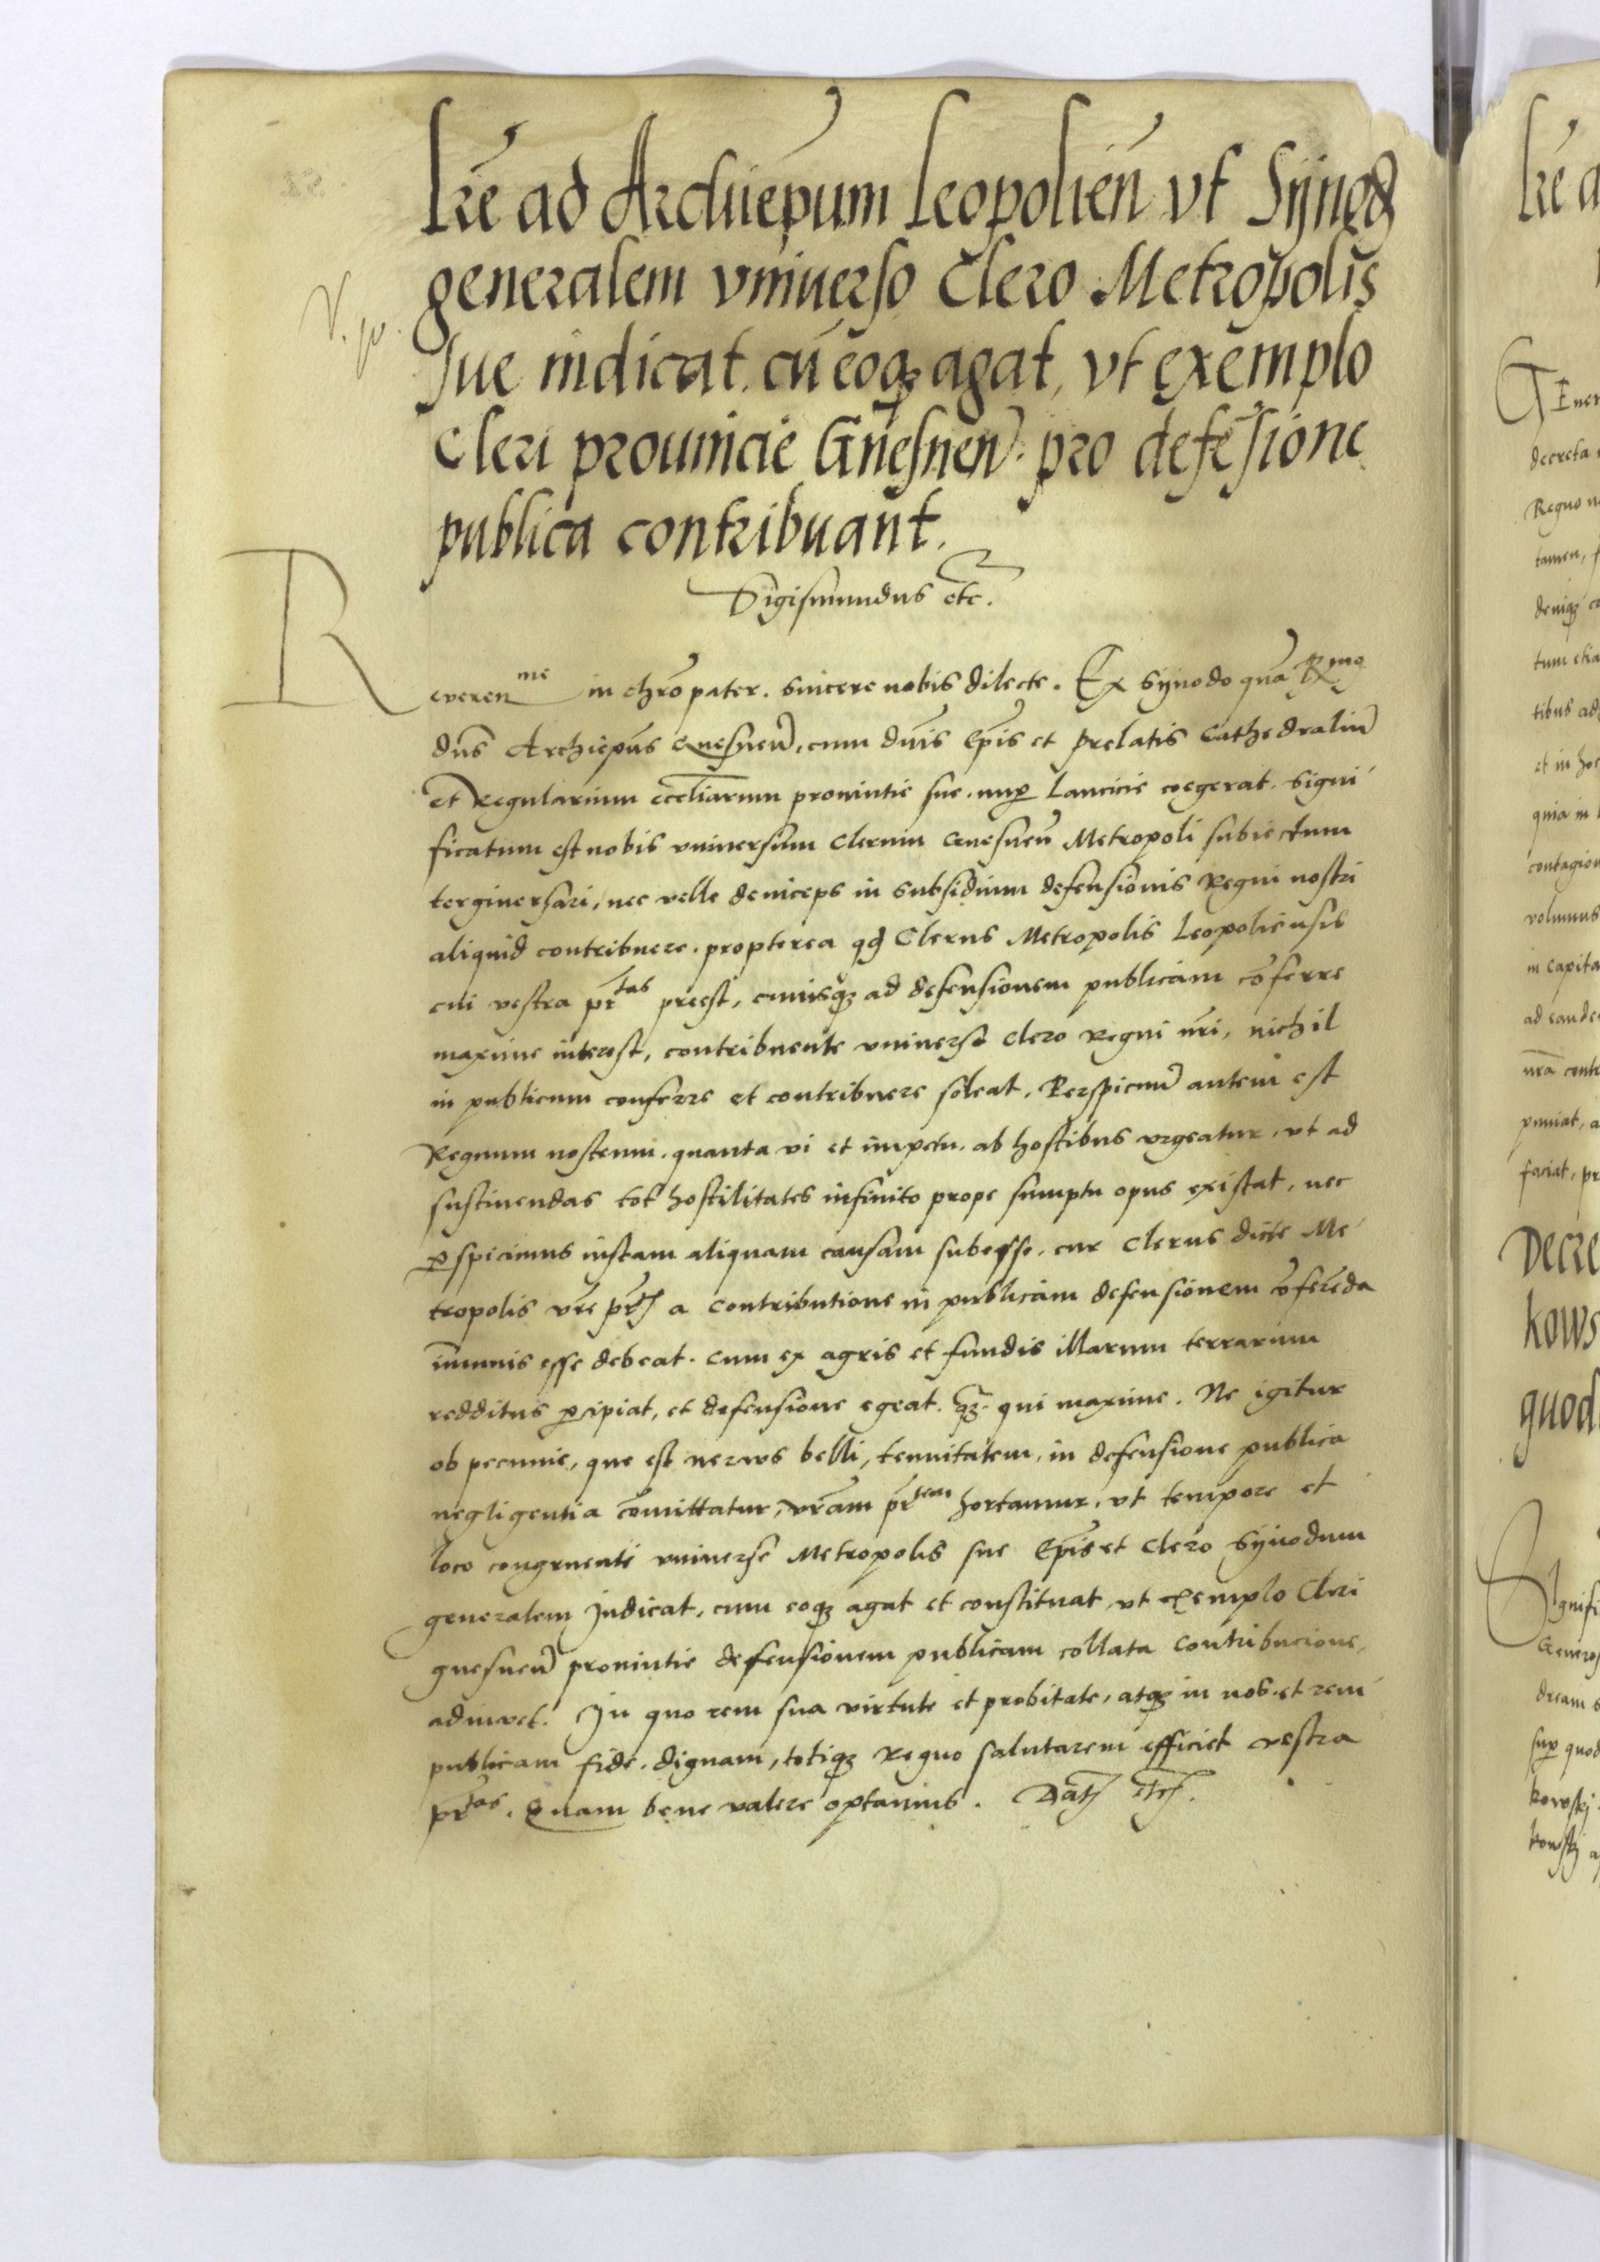 Lrē ad Archiepum Leopolien̄ vt Sijnod
generalem vniuerso Clero Metropolis
sue indicat, cū eoq3 agat, vt exemplo
Cleri prouincie Gnesnen̄. pro defēsione
publica contribuant.
V. w.
Sigismundus etc.
Reveren^me in chrō pater. sincere nobis dilecte. Ex synodo quā R^mus
dn̄s Archiepūs Gnesnen̄, cum dn̄is Ep̄is et prelatis Cathedraliū
et Regularium eccl̄iarum prouintie sue. nup Lancicie coegerat. signi
ficatum est nobis vniuersum Clerum Gnesnen̄ Metropoli subiectum
tergiuersari, nec velle deinceps in subsidium defensionis Regni nostri
aliquid contribuere. propterea qd Clerus Metropolis Leopoliensis
cui vestra pr̄^tas preest, cuiusq3 ad defensionem publicam cōferre
maxime interest, contribuente vniuerso Clero Regni nr̄i, nichil
in publicum conferre et contribuere soleat. Perspicuū autem est
Regnum nostrum. quanta vi et impetu. ab hostibus vrgeatur, vt ad
sustinendas tot hostilitates infinito prope sumptu opus existat, nec
pspicimus iustam aliquam causam subesse, cur Clerus dicte Me
tropolis vr̄e pr̄tis a contributione in publicam defensionem cōferēda
im̄unis esse debeat. cum ex agris et fundis illarum terrarum
redditus pcipiat, et defensione egeat. q3. qui maxime. Ne igitur
ob pecunie, que est nervus belli, tenuitatem, in defensione publica
negligentia cōmittatur, vrām pr̄^tem hortamur, vt tempore et
loco congruenti vniuerse Metropolis sue Ep̄is et Clero Synodum
generalem Indicat, cum eoq3 agat et constituat, vt exemplo Cleri
gnesnen̄ prouintie defensionem publicam collata contribucione,
adiuvet. In quo rem sua virtute et probitate, atq3 in nos et rem
publicam fide. dignam, totiq3 Regno salutarem efficiet vestra
pr̄^tas. Quam bene valere optamus. Dat etc.